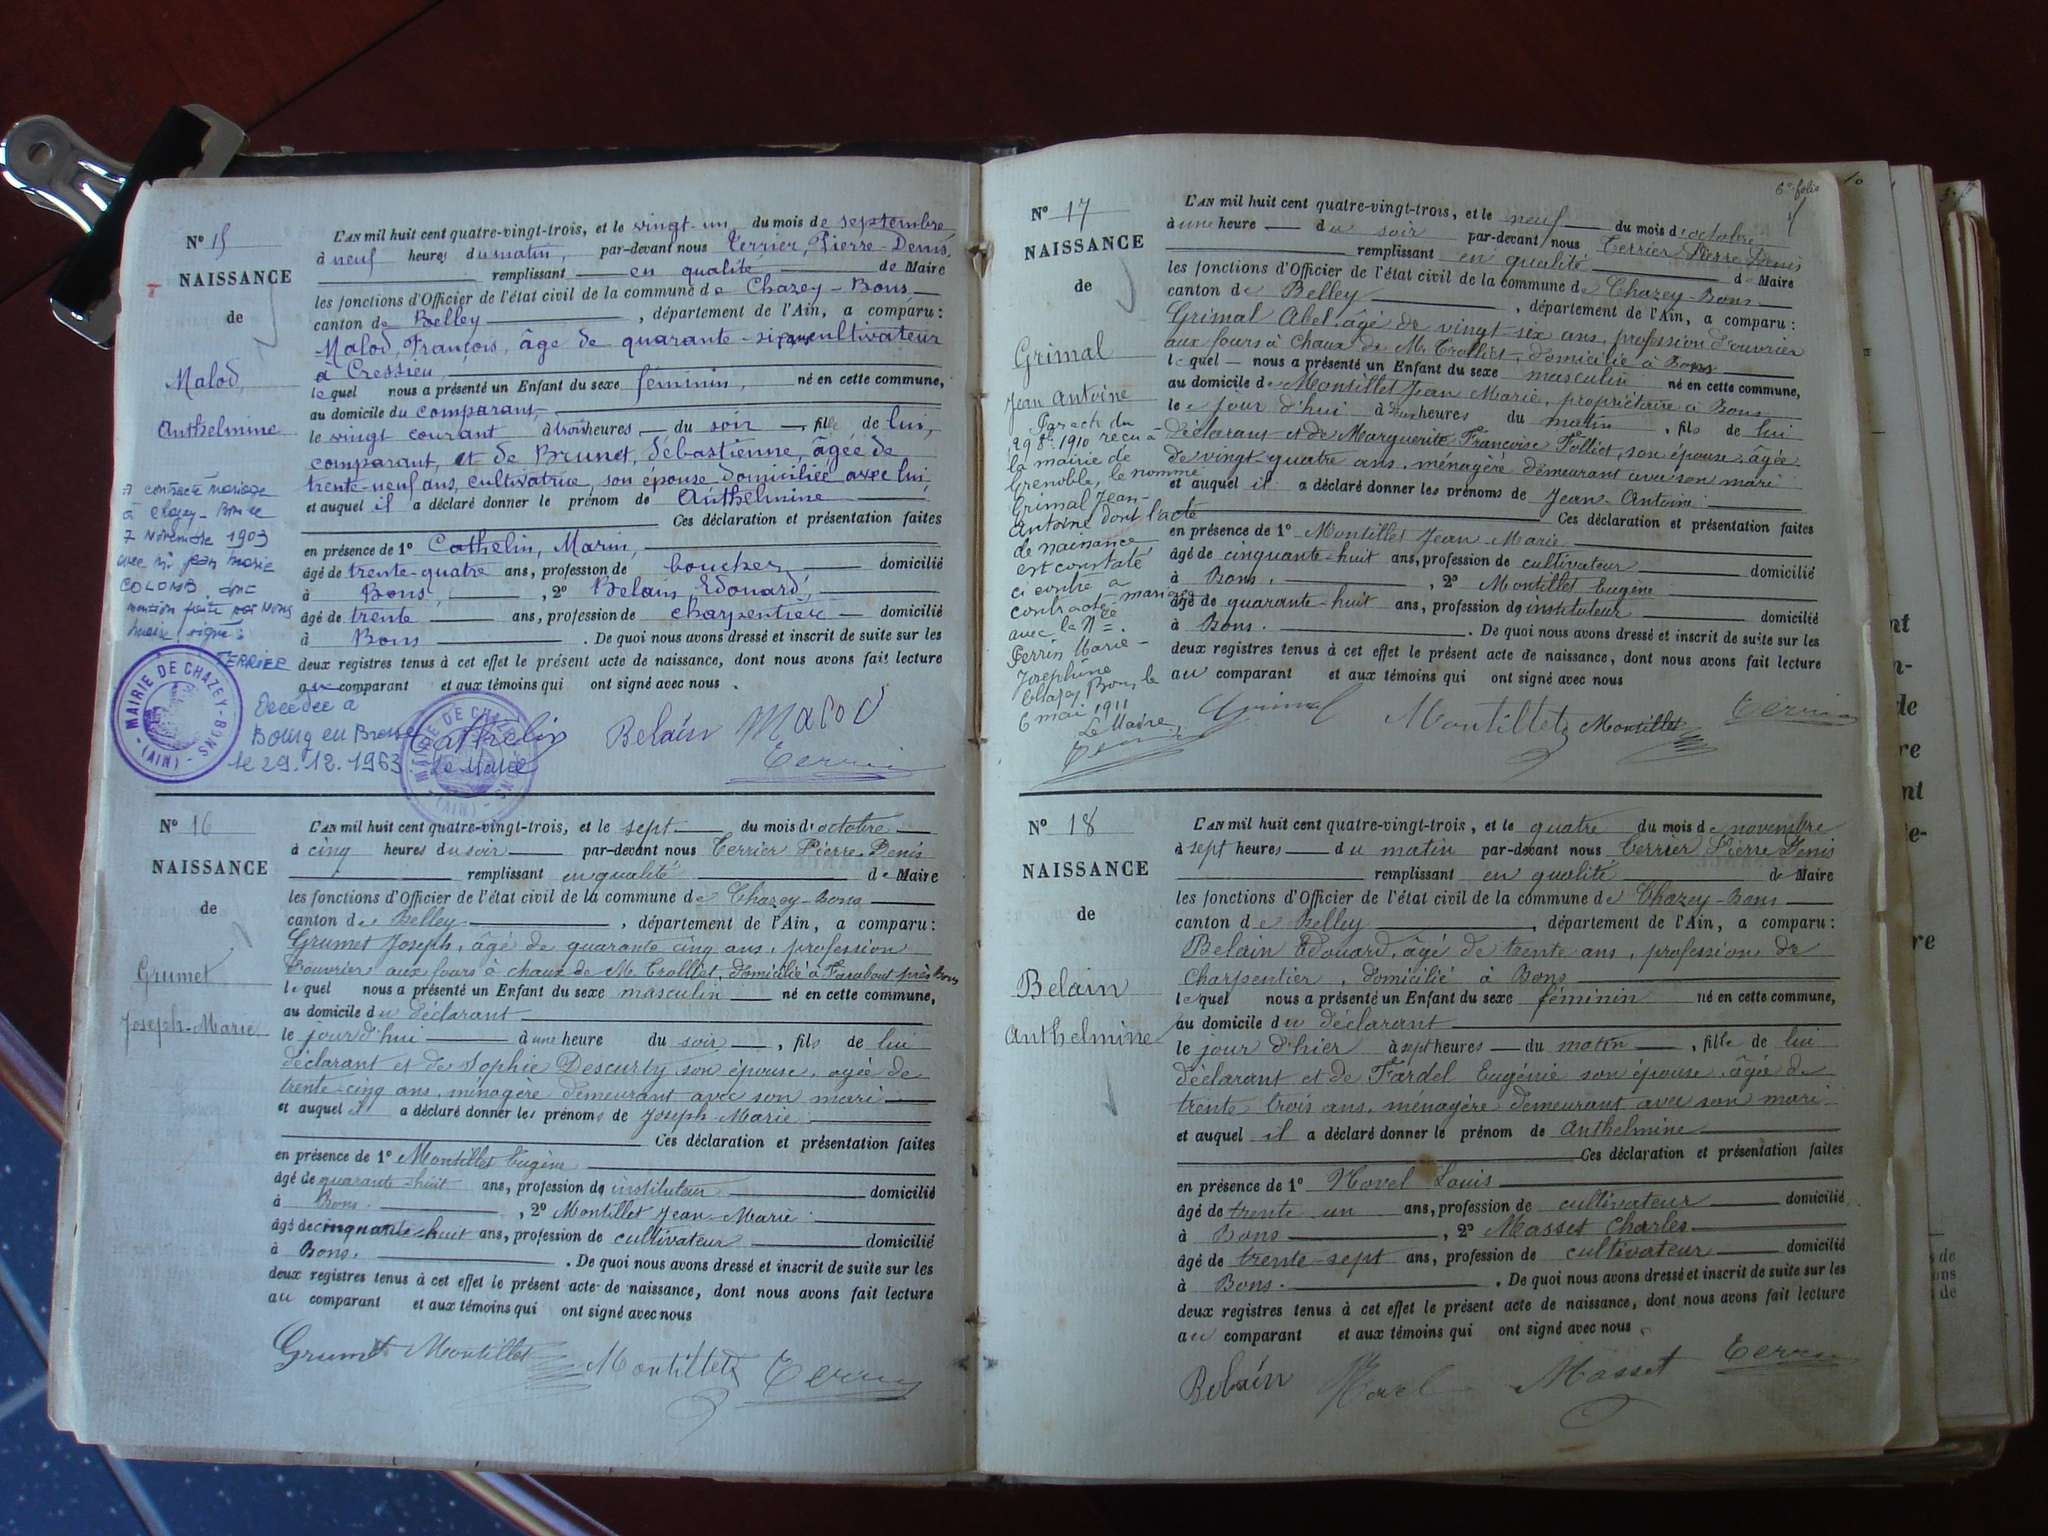 N° 15
NAISSANCE
de
Malod,
Anthelmine
a contracté mariage
à Chazey-Bons le
7 Novembre 1903
avec Mr Jean Marie
COLOMB, dont
mention faite par Nous
Maire, signé :
TERRIER
MAIRIE DE CHAZEY-BONS (AIN)
Décédée à
Bourg en Bresse
le 29.12.1963
Le Maire
L'AN mil huit cent quatre-vingt-trois, et le vingt-un du mois de septembre
à neuf heures du matin, par-devant nous Terrier, Pierre-Denis,
remplissant en qualité de Maire
les fonctions d'Officier de l'état civil de la commune de Chazey-Bons
canton de Belley, département de l'Ain, a comparu :
Malod, François, âgé de quarante-six ans cultivateur
à Cressieu,
le quel nous a présenté un Enfant du sexe féminin, né en cette commune,
au domicile du comparant,
le vingt courant à trois heures du soir, fille de lui,
comparant, et de Brunet, Sébastienne, âgée de
trente-neuf ans, cultivatrice, son épouse domiciliée avec lui,
et auquel il a déclaré donner le prénom de Anthelmine
Ces déclaration et présentation faites
en présence de 1° Cathelin, Marin,
âgé de trente-quatre ans, profession de boucher domicilié
à Bons, 2° Belain, Edouard,
âgé de trente ans, profession de charpentier domicilié
à Bons. De quoi nous avons dressé et inscrit de suite sur les
deux registres tenus à cet effet le présent acte de naissance, dont nous avons fait lecture
au comparant et aux témoins qui ont signé avec nous.
Cathelin Belain Malod
Terrier
N° 16
NAISSANCE
de
Grumet
Joseph-Marie
L'AN mil huit cent quatre-vingt-trois, et le sept du mois d'octobre
à cinq heures du soir par-devant nous Terrier Pierre Denis
remplissant en qualité de Maire
les fonctions d'Officier de l'état civil de la commune de Chazey-Bons
canton de Belley, département de l'Ain, a comparu :
Grumet Joseph, âgé de quarante cinq ans, profession
d'ouvrier aux fours à chaux de Mr Trolliet, domicilié à Tarabout près Bons
le quel nous a présenté un Enfant du sexe masculin né en cette commune,
au domicile du déclarant
le jour d'hui à une heure du soir, fils de lui
déclarant et de Sophie Descurty son épouse, âgée de
trente-cinq ans, ménagère demeurant avec son mari
et auquel il a déclaré donner les prénoms de Joseph-Marie
Ces déclaration et présentation faites
en présence de 1° Montillet Eugène
âgé de quarante-huit ans, profession de instituteur domicilié
à Bons, 2° Montillet Jean Marie
âgé de cinquante-huit ans, profession de cultivateur domicilié
à Bons. De quoi nous avons dressé et inscrit de suite sur les
deux registres tenus à cet effet le présent acte de naissance, dont nous avons fait lecture
au comparant et aux témoins qui ont signé avec nous
Grumet Montillet Montillet Terrier
6e folio
N° 17
NAISSANCE
de
Grimal
Jean Antoine
29 8bre 1910 reçu à
la mairie de
Grenoble, le nommé
Grimal Jean-
Antoine dont l'acte
de naissance
est constaté
ci contre a
contracté mariage
avec la Née
Perrin Marie-
Joséphine
Chazey Bons, le
6 mai 1911
Le Maire,
Terrier
L'AN mil huit cent quatre-vingt-trois, et le neuf du mois d'octobre
à une heure du soir par-devant nous Terrier Pierre Denis
remplissant en qualité de Maire
les fonctions d'Officier de l'état civil de la commune de Chazey-Bons
canton de Belley, département de l'Ain, a comparu :
Grimal Abel, âgé de vingt-six ans, profession d'ouvrier
aux fours à chaux de Mr Trolliet, domicilié à Bons
le quel nous a présenté un Enfant du sexe masculin né en cette commune,
au domicile de Montillet Jean Marie, propriétaire à Bons
le jour d'hui à heures du matin, fils de lui
déclarant et de Marguerite Françoise Folliet, son épouse, âgée
de vingt-quatre ans, ménagère demeurant avec son mari
et auquel il a déclaré donner les prénoms de Jean-Antoine
Ces déclaration et présentation faites
en présence de 1° Montillet Jean Marie
âgé de cinquante-huit ans, profession de cultivateur domicilié
à Bons, 2° Montillet Eugène
âgé de quarante-huit ans, profession de instituteur domicilié
à Bons. De quoi nous avons dressé et inscrit de suite sur les
deux registres tenus à cet effet le présent acte de naissance, dont nous avons fait lecture
au comparant et aux témoins qui ont signé avec nous
Grimal Montillet Montillet Terrier
N° 18
NAISSANCE
de
Belain
Anthelmine
L'AN mil huit cent quatre-vingt-trois, et le quatre du mois de novembre
à sept heures du matin par-devant nous Terrier Pierre Denis
remplissant en qualité de Maire
les fonctions d'Officier de l'état civil de la commune de Chazey-Bons
canton de Belley, département de l'Ain, a comparu :
Belain Edouard, âgé de trente ans, profession de
charpentier, domicilié à Bons
le quel nous a présenté un Enfant du sexe féminin né en cette commune,
au domicile du déclarant
le jour d'hier à sept heures du matin, fille de lui
déclarant et de Fardel Eugénie son épouse, âgée de
trente trois ans, ménagère demeurant avec son mari
et auquel il a déclaré donner le prénom de Anthelmine
Ces déclaration et présentation faites
en présence de 1° Hovel Louis
âgé de trente un ans, profession de cultivateur domicilié
à Bons, 2° Masset Charles
âgé de trente-sept ans, profession de cultivateur domicilié
à Bons. De quoi nous avons dressé et inscrit de suite sur les
deux registres tenus à cet effet le présent acte de naissance, dont nous avons fait lecture
au comparant et aux témoins qui ont signé avec nous.
Belain Hovel Masset Terrier